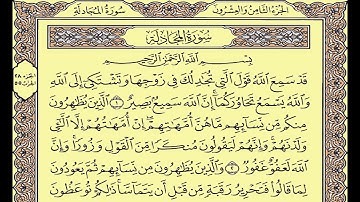 الجزء الثامن والعشرون
سورة المجادلة
سورة المجادلة
بسم الله الرحمن الرحيم
قد سمع الله قول التي تجادلك في زوجها وتشتكي إلى الله
والله يسمع تحاوركما إن الله سميع بصير ١ الذين يظاهرون
منكم من نسائهم ما هن أمهاتهم إن أمهاتهم إلا الئي
ولدنهم وإنهم ليقولون منكرا من القول وزورا وإن
الله لعفو غفور ٢ والذين يظاهرون من نسائهم ثم يعودون
لما قالوا فتحرير رقبة من قبل أن يتماسا ذلكم توعظون